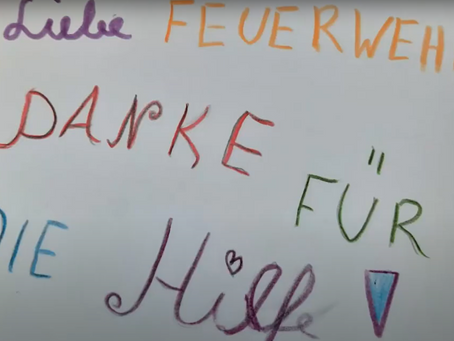 Liebe FEUERWEH
DANKE
FÜR
DIE
Hilfe!